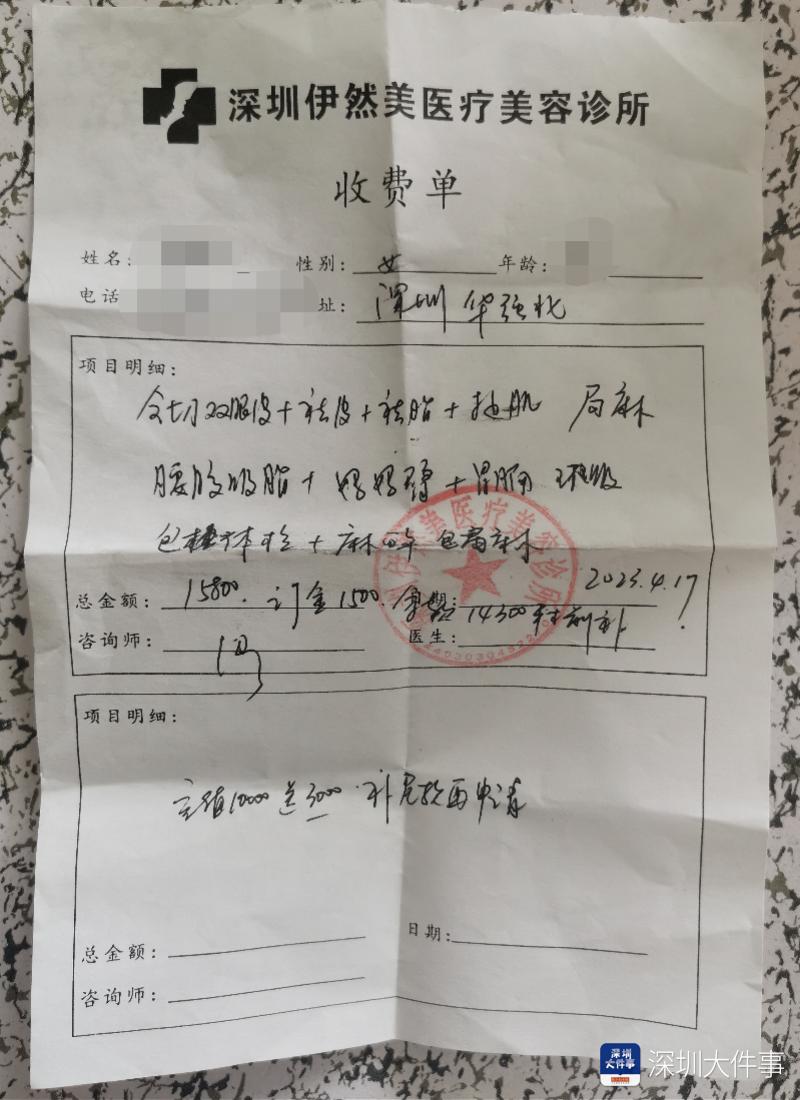 深圳伊然美医疗美容诊所
收费单
姓名: 性别: 女 年龄:
电话 址: 深圳 华强北
项目明细:
全切双眼皮+祛皮+祛脂+ 局麻
腰腹吸脂+妈妈臀+ 环吸
包 体检+麻 包局麻
总金额: 15800. 订金1500. 14300 2023.4.17
咨询师: 冯 医生:
伊然美医疗美容诊所
项目明细:
充值10000送3000 申请
总金额: 日期:
咨询师:
深圳大件事
深圳大件事